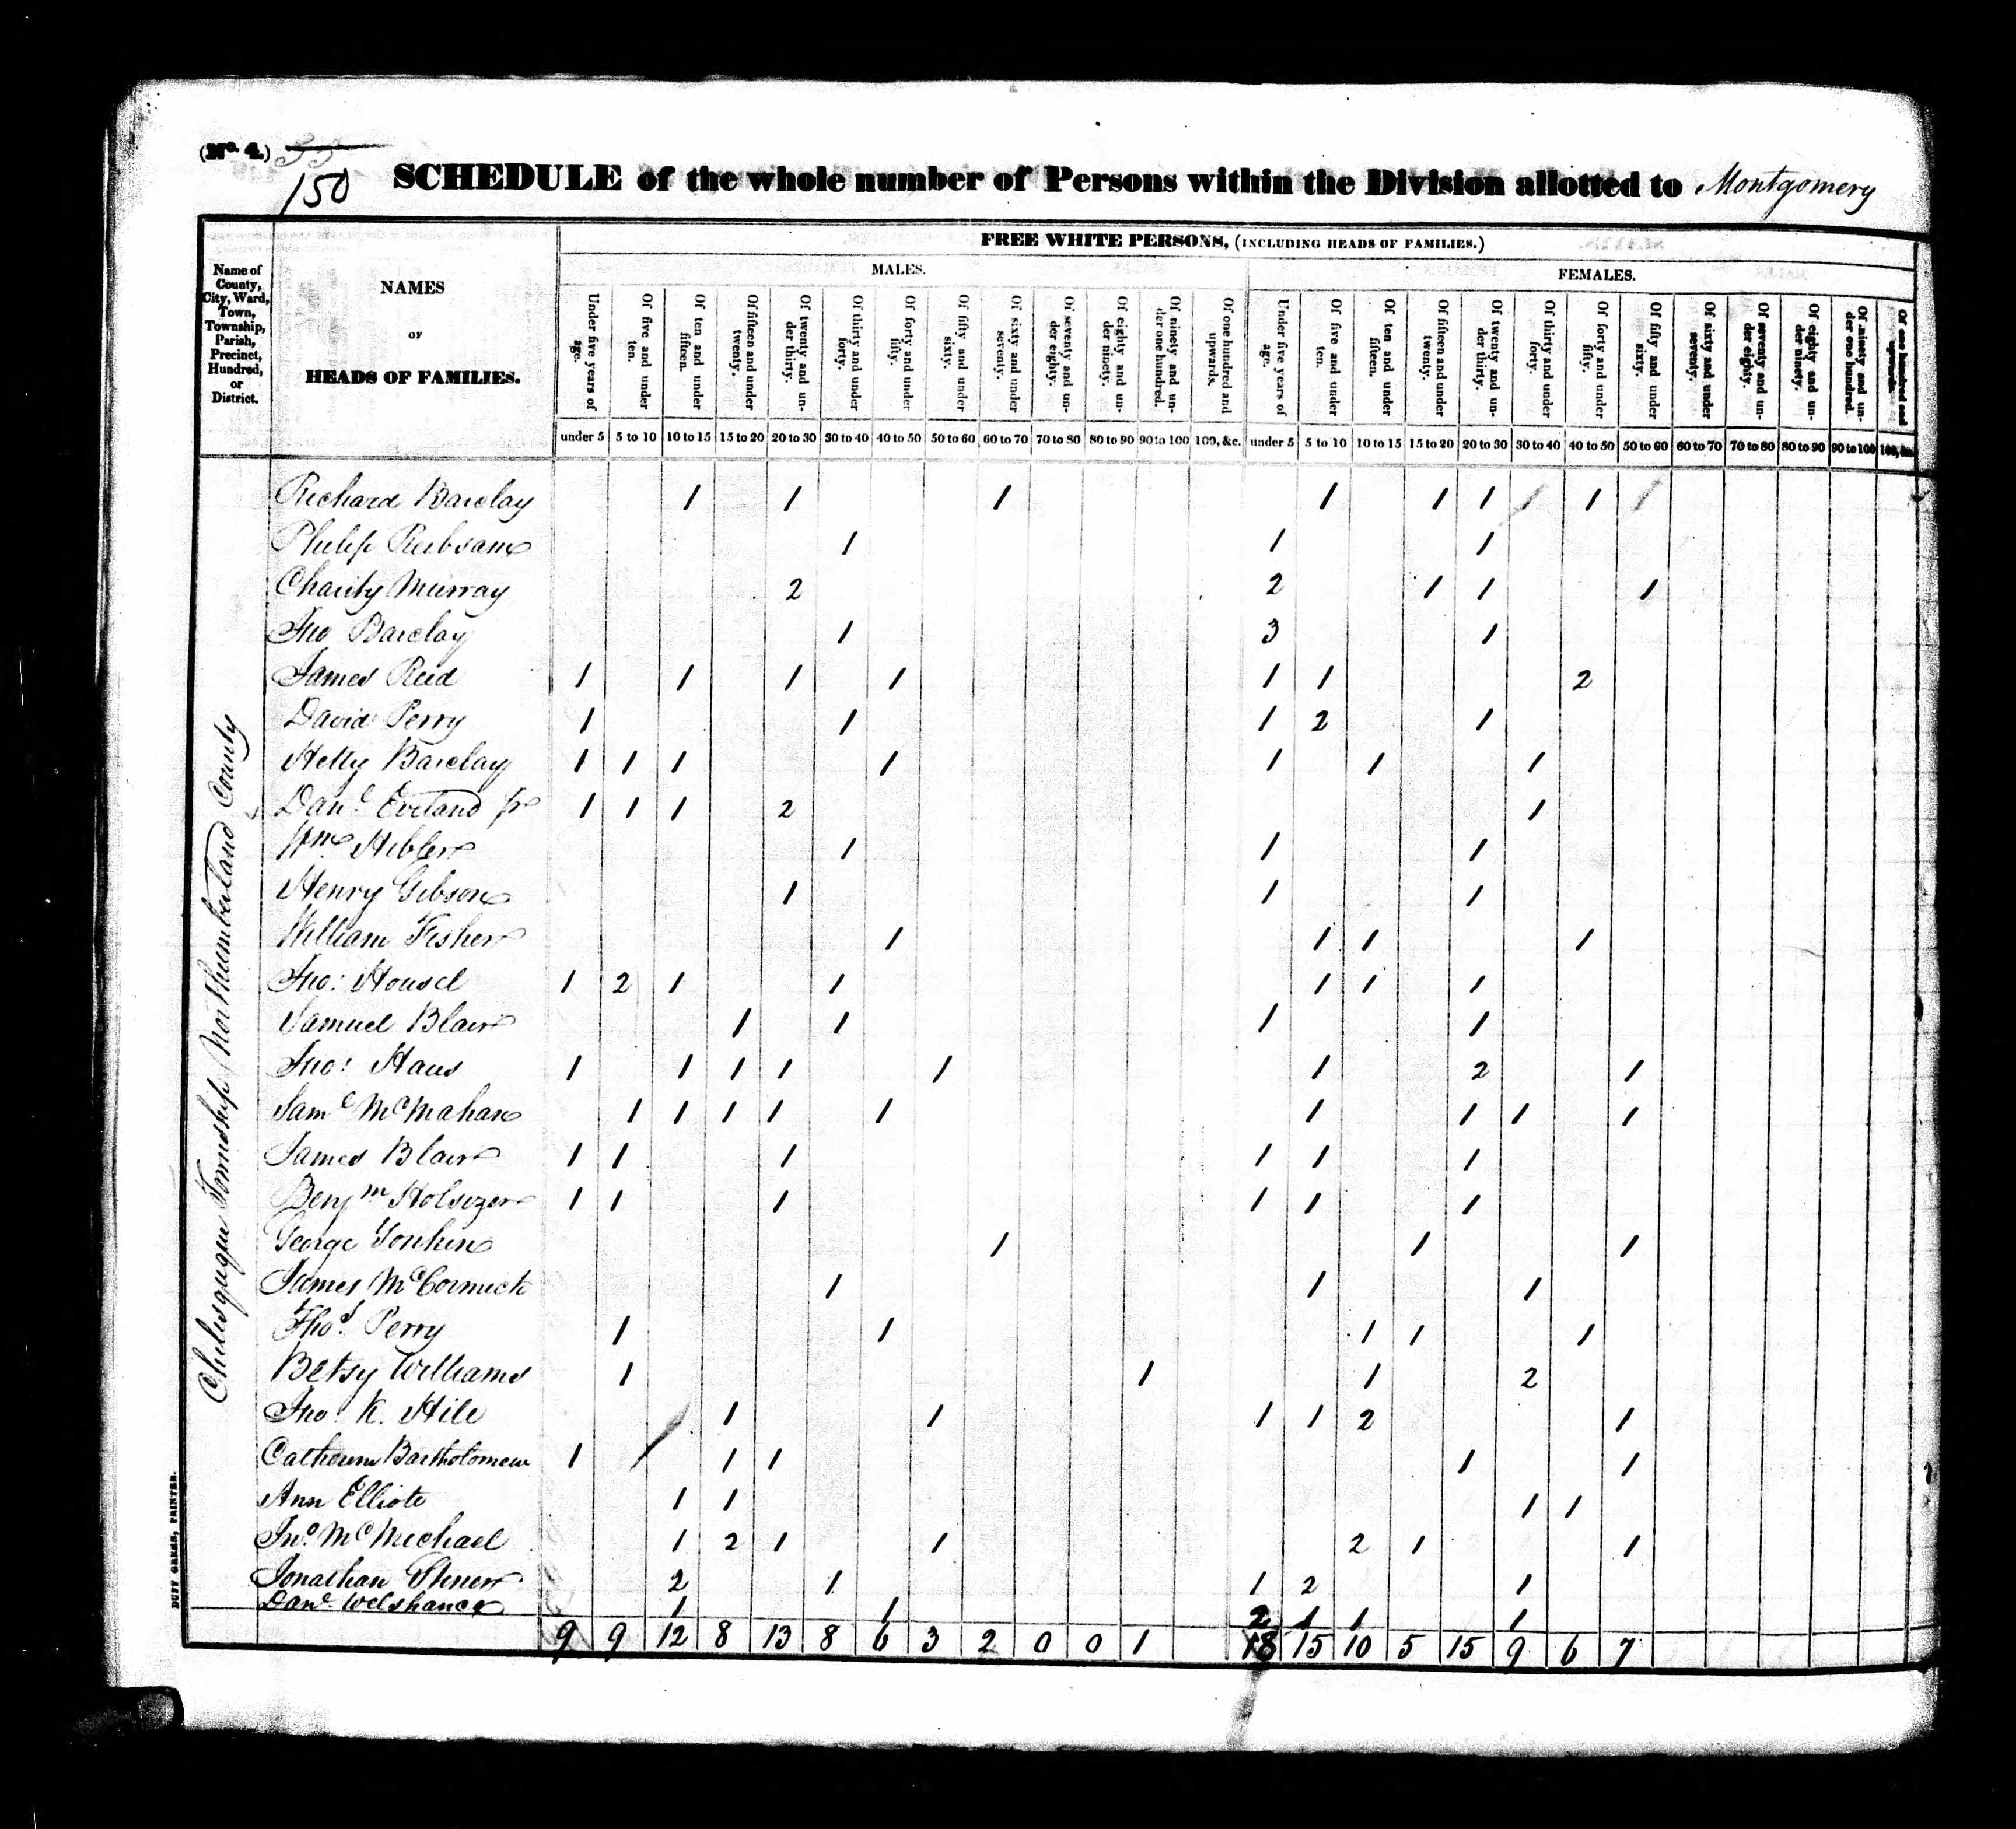 (No. 4.) 33
150
SCHEDULE of the whole number of Persons within the Division allotted to Montgomery
FREE WHITE PERSONS, (INCLUDING HEADS OF FAMILIES.)
MALES. FEMALES.
Name of County, City, Ward, Town, Township, Parish, Precinct, Hundred, or District.
NAMES
OF
HEADS OF FAMILIES.
Under five years of age. Of five and under ten. Of ten and under fifteen. Of fifteen and under twenty. Of twenty and under thirty. Of thirty and under forty. Of forty and under fifty. Of fifty and under sixty. Of sixty and under seventy. Of seventy and under eighty. Of eighty and under ninety. Of ninety and under one hundred. Of one hundred and upwards. Under five years of age. Of five and under ten. Of ten and under fifteen. Of fifteen and under twenty. Of twenty and under thirty. Of thirty and under forty. Of forty and under fifty. Of fifty and under sixty. Of sixty and under seventy. Of seventy and under eighty. Of eighty and under ninety. Of ninety and under one hundred. Of one hundred and upwards.
under 5 5 to 10 10 to 15 15 to 20 20 to 30 30 to 40 40 to 50 50 to 60 60 to 70 70 to 80 80 to 90 90 to 100 100, &c. under 5 5 to 10 10 to 15 15 to 20 20 to 30 30 to 40 40 to 50 50 to 60 60 to 70 70 to 80 80 to 90 90 to 100 100, &c.
Chilisquaque Township Northumberland County
Richard Barclay 1 1 1 1 1 1 1 1 1
Philip Reibsam 1 1 1
Charity Murray 2 2 1 1 1
Jno Barclay 1 3 1
James Reid 1 1 1 1 1 1 2
David Perry 1 1 1 2 1
Hetty Barclay 1 1 1 1 1 1 1
Danl Everland 1 1 1 2 1
Wm Hibler 1 1 1
Henry Gibson 1 1 1
William Fisher 1 1 1 1
Jno: Housel 1 2 1 1 1 1 1
Samuel Blair 1 1 1 1
Jno: Haus 1 1 1 1 1 1 2 1
Saml McMahan 1 1 1 1 1 1 1 1 1
James Blair 1 1 1 1 1 1
Benjm Holsizer 1 1 1 1 1 1
George 1 1 1
James McCormick 1 1 1
Thos Perry 1 1 1 1 1
Betsy Williams 1 1 1 2
Jno: K. Hile 1 1 1 1 2 1
Catherine Bartholomew 1 1 1 1 1 1
Ann Elliote 1 1 1 1
Jno. McMichael 1 2 1 1 2 1 1
Jonathan 2 1 1 2 1
Danl Welshance 1 1 2 1 1 1
9 9 12 8 13 8 6 3 2 0 0 1 18 15 10 5 15 9 6 7
DUFF GREEN, PRINTER.